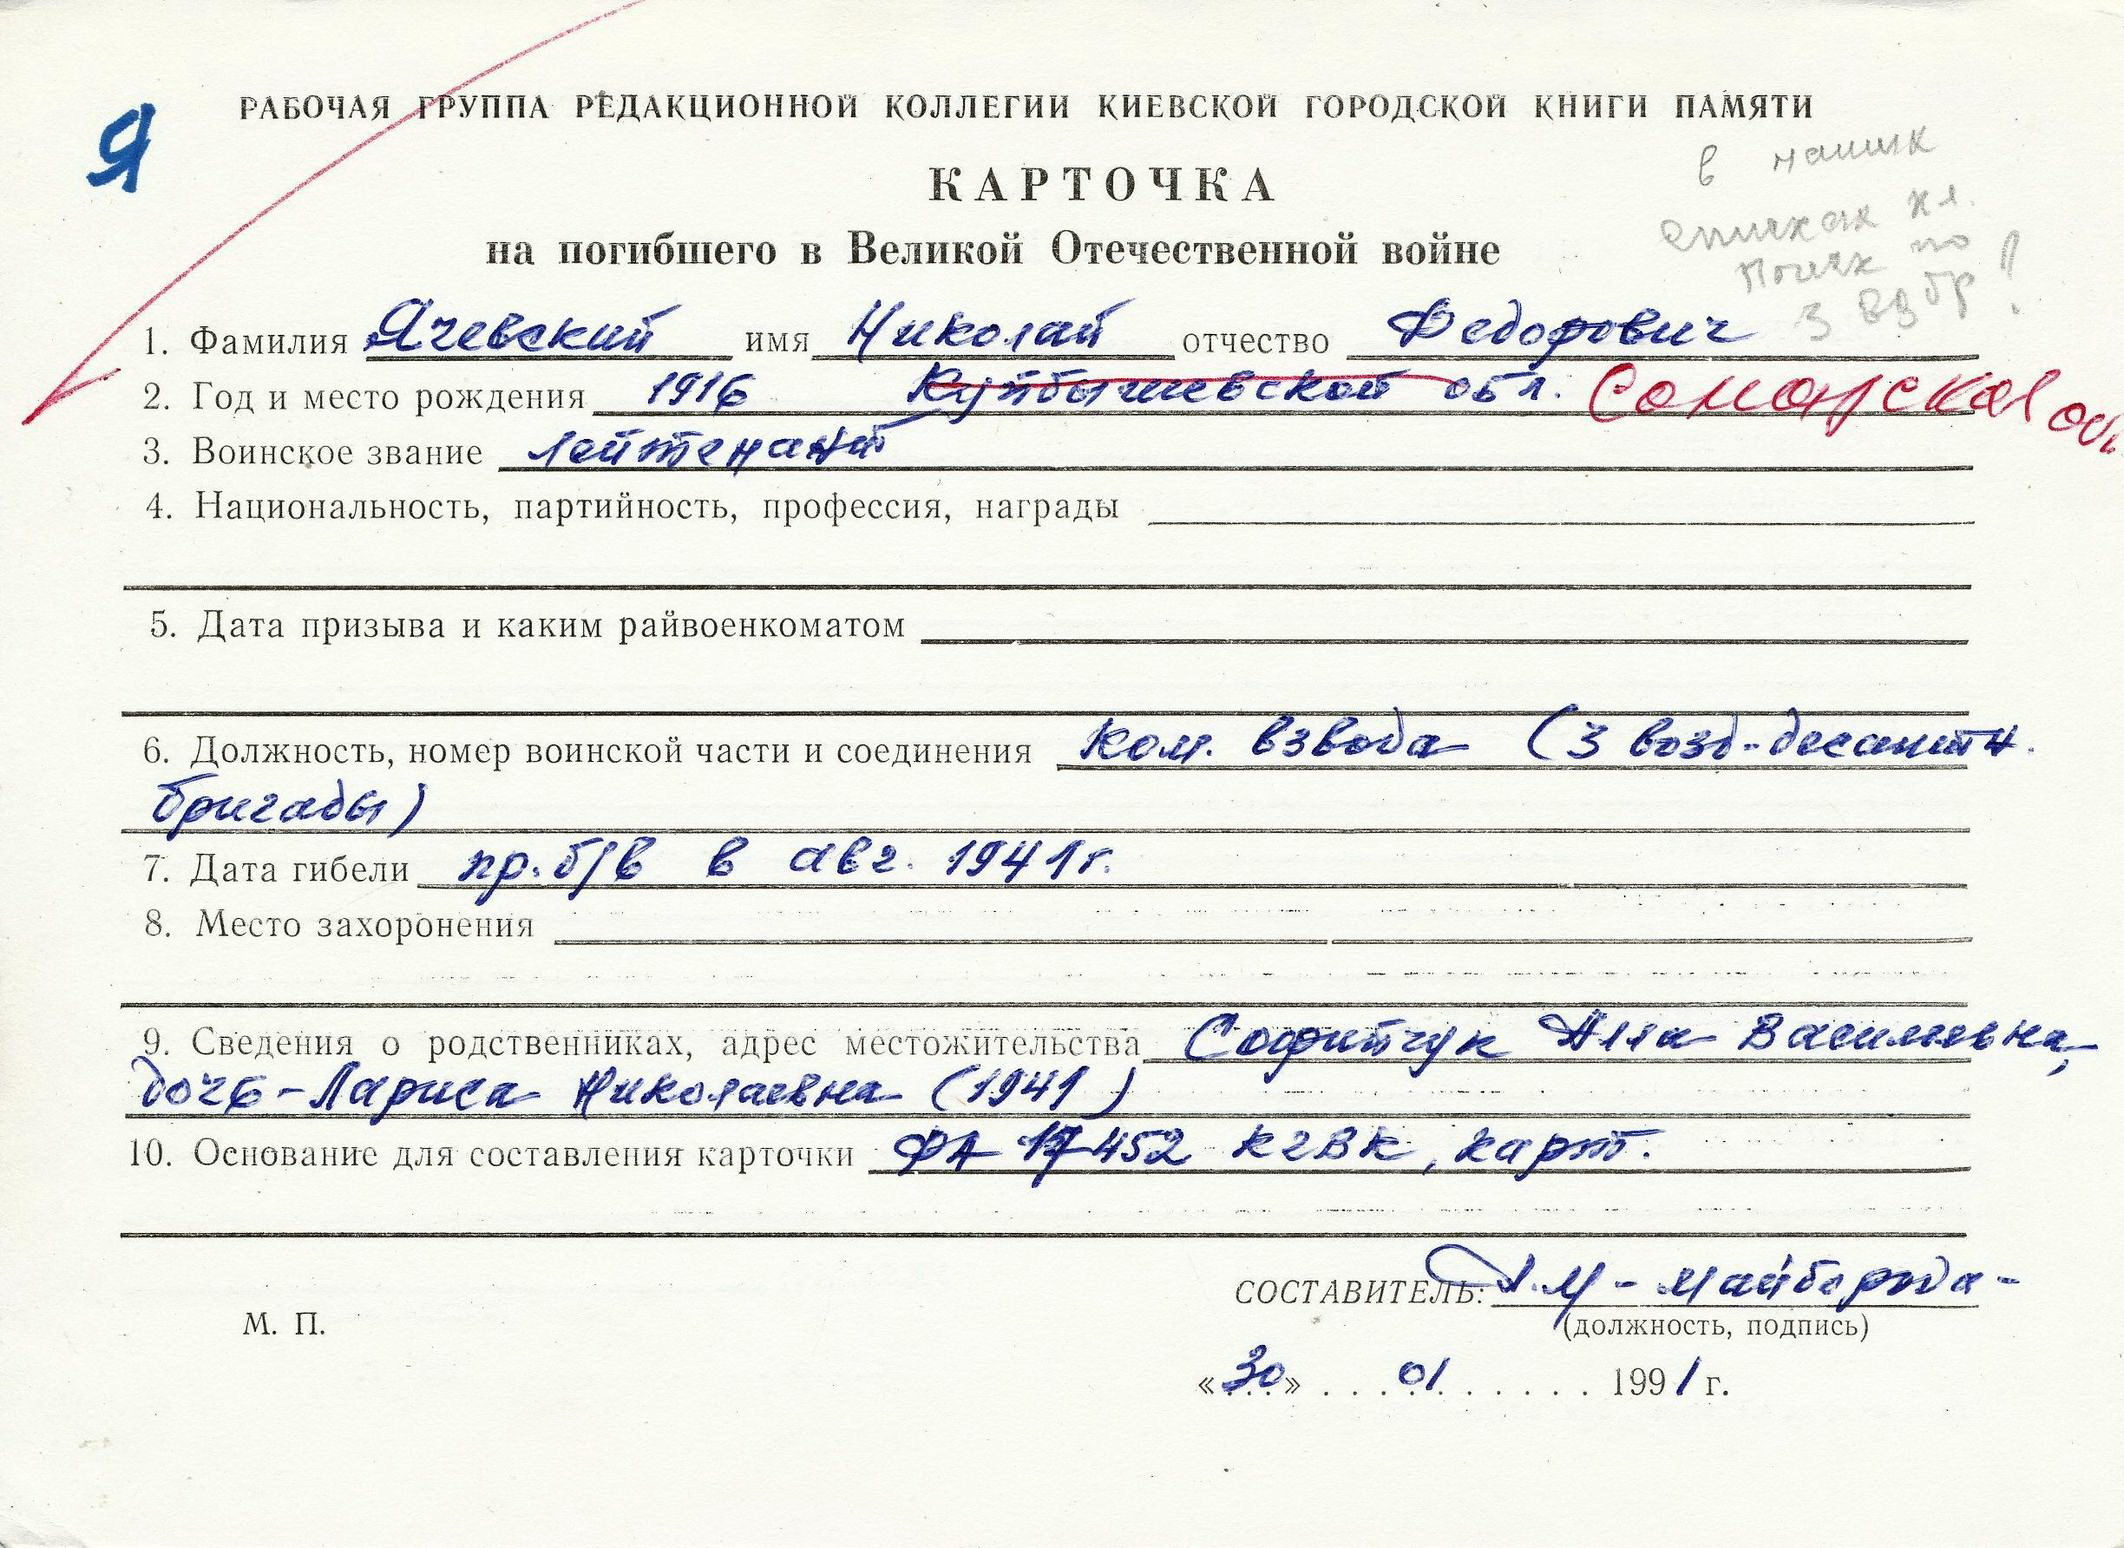 Я
РАБОЧАЯ ГРУППА РЕДАКЦИОННОЙ КОЛЛЕГИИ КИЕВСКОЙ ГОРОДСКОЙ КНИГИ ПАМЯТИ
КАРТОЧКА
на погибшего в Великой Отечественной войне
в наших
списках
3 ВД бр!
1. Фамилия Ячевский имя Николай отчество Федорович
2. Год и место рождения 1916 Куйбышевской обл. Самарская обл
3. Воинское звание Лейтенант
4. Национальность, партийность, профессия, награды
5. Дата призыва и каким райвоенкоматом
6. Должность, номер воинской части и соединения Ком. взвода (3 возд-десантн.
бригады)
7. Дата гибели пр. б/в в авг. 1941 г.
8. Место захоронения
9. Сведения о родственниках, адрес местожительства Софитчук Алла Васильевна,
дочь - Лариса Николаевна (1941)
10. Основание для составления карточки ФА 17452 КГВК, карт.
СОСТАВИТЕЛЬ: А.М - Майборода -
М. П.
(должность, подпись)
«30» . . . 01 . . . . . . 1991 г.